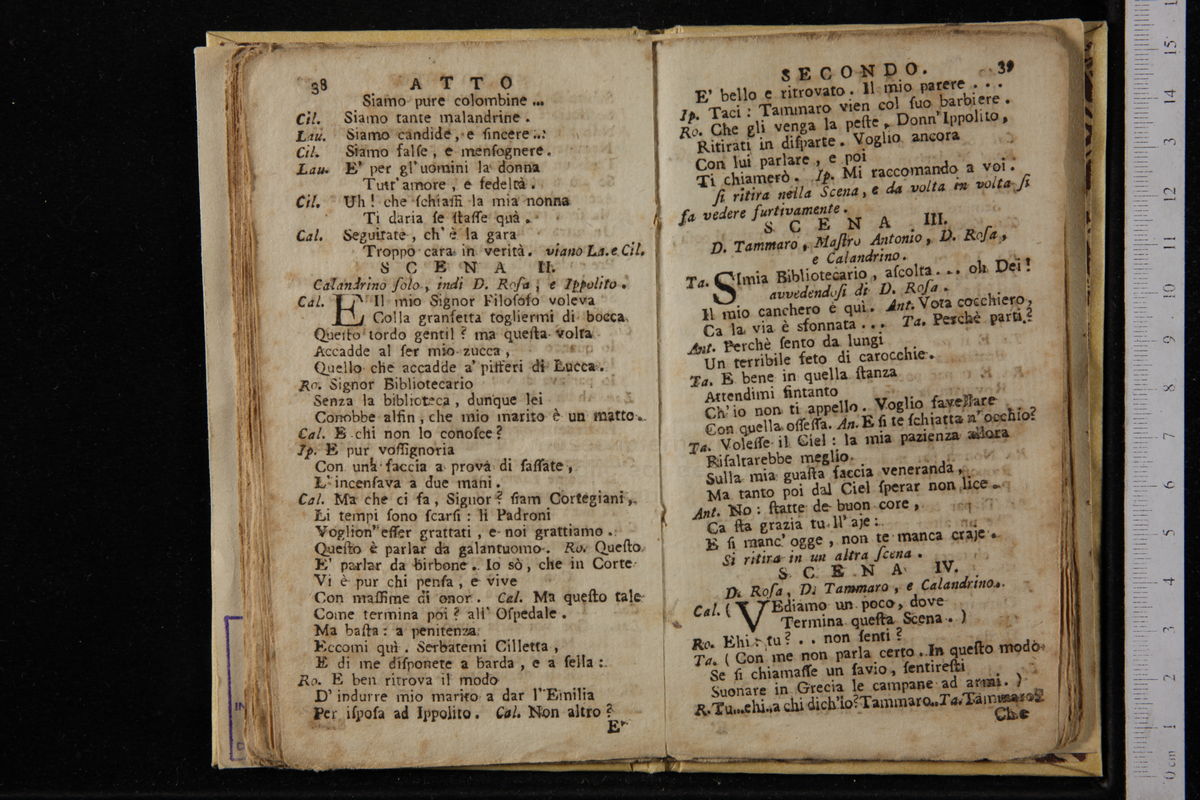 38 ATTO
Siamo pure colombine ...
Cil. Siamo tante malandrine .
Lau. Siamo candide , e ſincere ..:
Cil. Siamo falſe , e menſognere .
Lau. E' per gl'uomini la donna
Tutt'amore , e fedeltà .
Cil. Uh ! che ſchiaffi la mia nonna
Ti daria ſe ſtaſſe quà .
Cal. Seguitate , ch'è la gara
Troppo cara in verità . viano La. e Cil.
SCENA II.
Calandrino ſolo , indi D. Roſa , e Ippolito .
Cal. E Il mio Signor Filoſofo voleva
Colla granſetta togliermi di bocca
Queſto tordo gentil ? ma queſta volta
Accadde al ſer mio zucca ,
Quello che accadde a' pifferi di Lucca .
Ro. Signor Bibliotecario
Senza la biblioteca , dunque lei
Conobbe alfin , che mio marito è un matto .
Cal. E chi non lo conoſce ?
Ip. E pur voſſignoria
Con una faccia a prova di ſaſſate ,
L'incenſava a due mani .
Cal. Ma che ci fa , Signor ? ſiam Cortegiani ,
Li tempi ſono ſcarſi : li Padroni
Voglion' eſſer grattati , e noi grattiamo .
Queſto è parlar da galantuomo . Ro. Queſto
E' parlar da birbone . Io sò , che in Corte
Vi è pur chi penſa , e vive
Con maſſime di onor . Cal. Ma queſto tale
Come termina poi ? all' Oſpedale .
Ma baſta : a penitenza
Eccomi quì . Serbatemi Cilletta ,
E di me diſponete a barda , e a ſella :
Ro. E ben ritrova il modo
D' indurre mio marito a dar l'Emilia
Per iſpoſa ad Ippolito . Cal. Non altro ?
E'
SECONDO. 39
E' bello e ritrovato . Il mio parere . . .
Ip. Taci : Tammaro vien col ſuo barbiere .
Ro. Che gli venga la peſte , Donn'Ippolito ,
Ritirati in diſparte . Voglio ancora
Con lui parlare , e poi
Ti chiamerò . Ip. Mi raccomando a voi .
ſi ritira nella Scena , e da volta in volta ſi
fa vedere furtivamente .
SCENA III.
D. Tammaro , Maſtro Antonio , D. Roſa ,
e Calandrino .
Ta. SImia Bibliotecario , aſcolta . . . oh Dei !
avvedendoſi di D. Roſa .
Il mio canchero è quì . Ant. Vota cocchiero ,
Ca la via è sfonnata . . . Ta. Perchè parti ?
Ant. Perchè ſento da lungi
Un terribile feto di carocchie .
Ta. E bene in quella ſtanza
Attendimi ſintanto
Ch'io non ti appello . Voglio favellare
Con quella oſſeſſa . An. E ſi te ſchiatta n'occhio ?
Ta. Voleſſe il Ciel : la mia pazienza allora
Riſaltarebbe meglio
Sulla mia guaſta faccia veneranda ,
Ma tanto poi dal Ciel ſperar non lice .
Ant. No : ſtatte de buon core ,
Ca ſta grazia tu ll' aje :
E ſi manc' ogge , non te manca craje .
Si ritira in un altra ſcena .
SCENA IV.
D. Roſa , D. Tammaro , e Calandrino .
Cal. ( VEdiamo un poco , dove
Termina queſta Scena . )
Ro. Ehi : tu ? . . non ſenti ?
Ta. ( Con me non parla certo . In queſto modo
Se ſi chiamaſſe un ſavio , ſentireſti
Suonare in Grecia le campane ad armi . )
R. Tu...ehi..a chi dich'io? Tammaro.. Ta. Tammaro?
Che